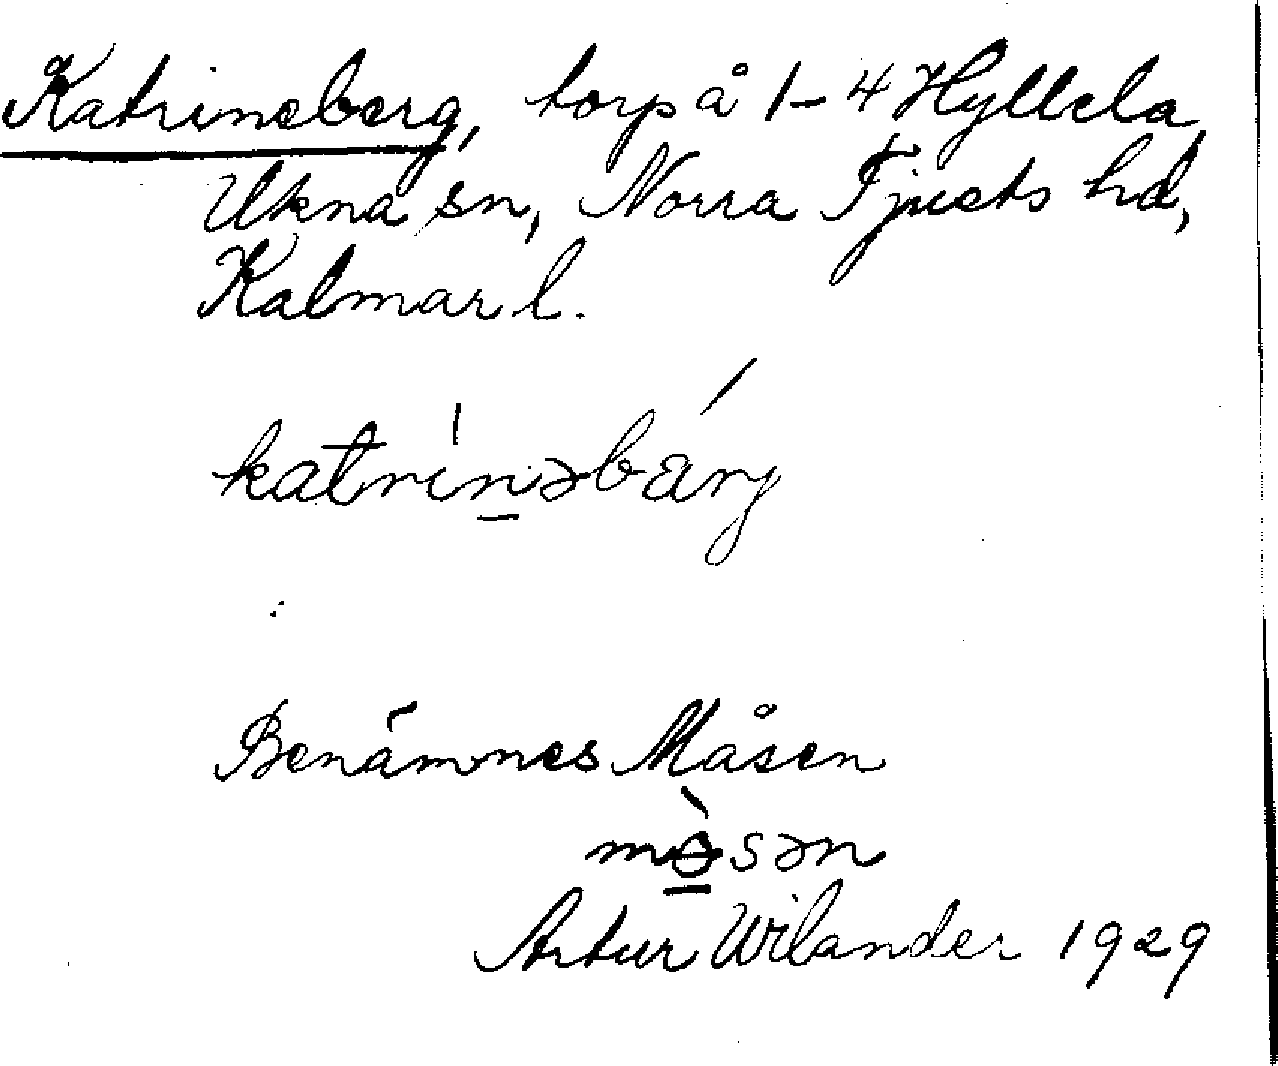 Katrineberg, torp å 1-4 Hyllela
Ukna sn, Norra Tjusts hd,
Kalmar l.
katrínəbárg
Benämnes Måsen
mòsən
Artur Wilander 1929